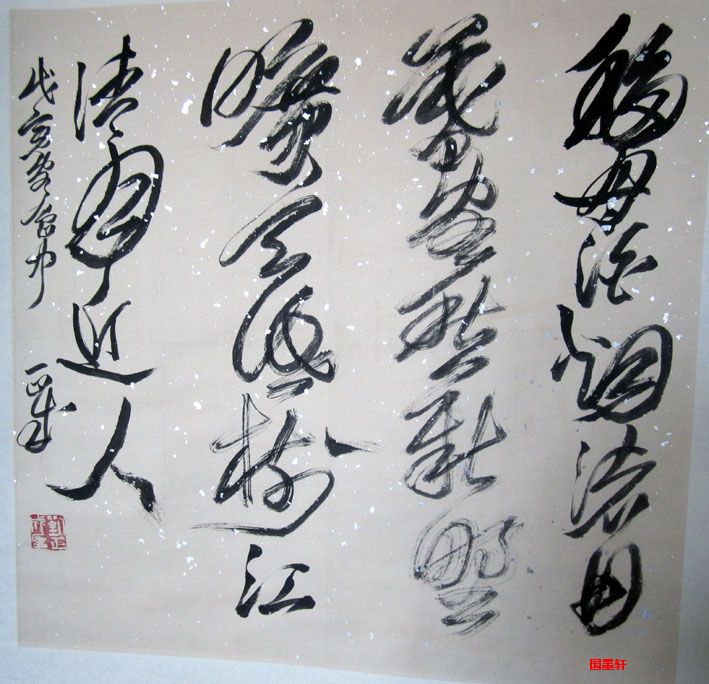 移舟泊烟渚日
暮客愁新野
曠天低樹江
清月近人
戊寅
正成
国墨轩